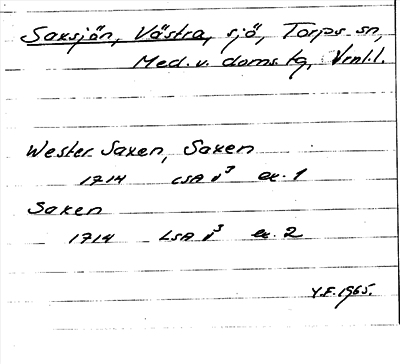 Saxsjön, Västra, sjö, Torps sn,
Med. v. doms. tg, Vrml.l.
Wester Saxen, Saxen
1714 LSA ex. 1
Saxen
1714 LSA ex. 2
Y.F. 1965.